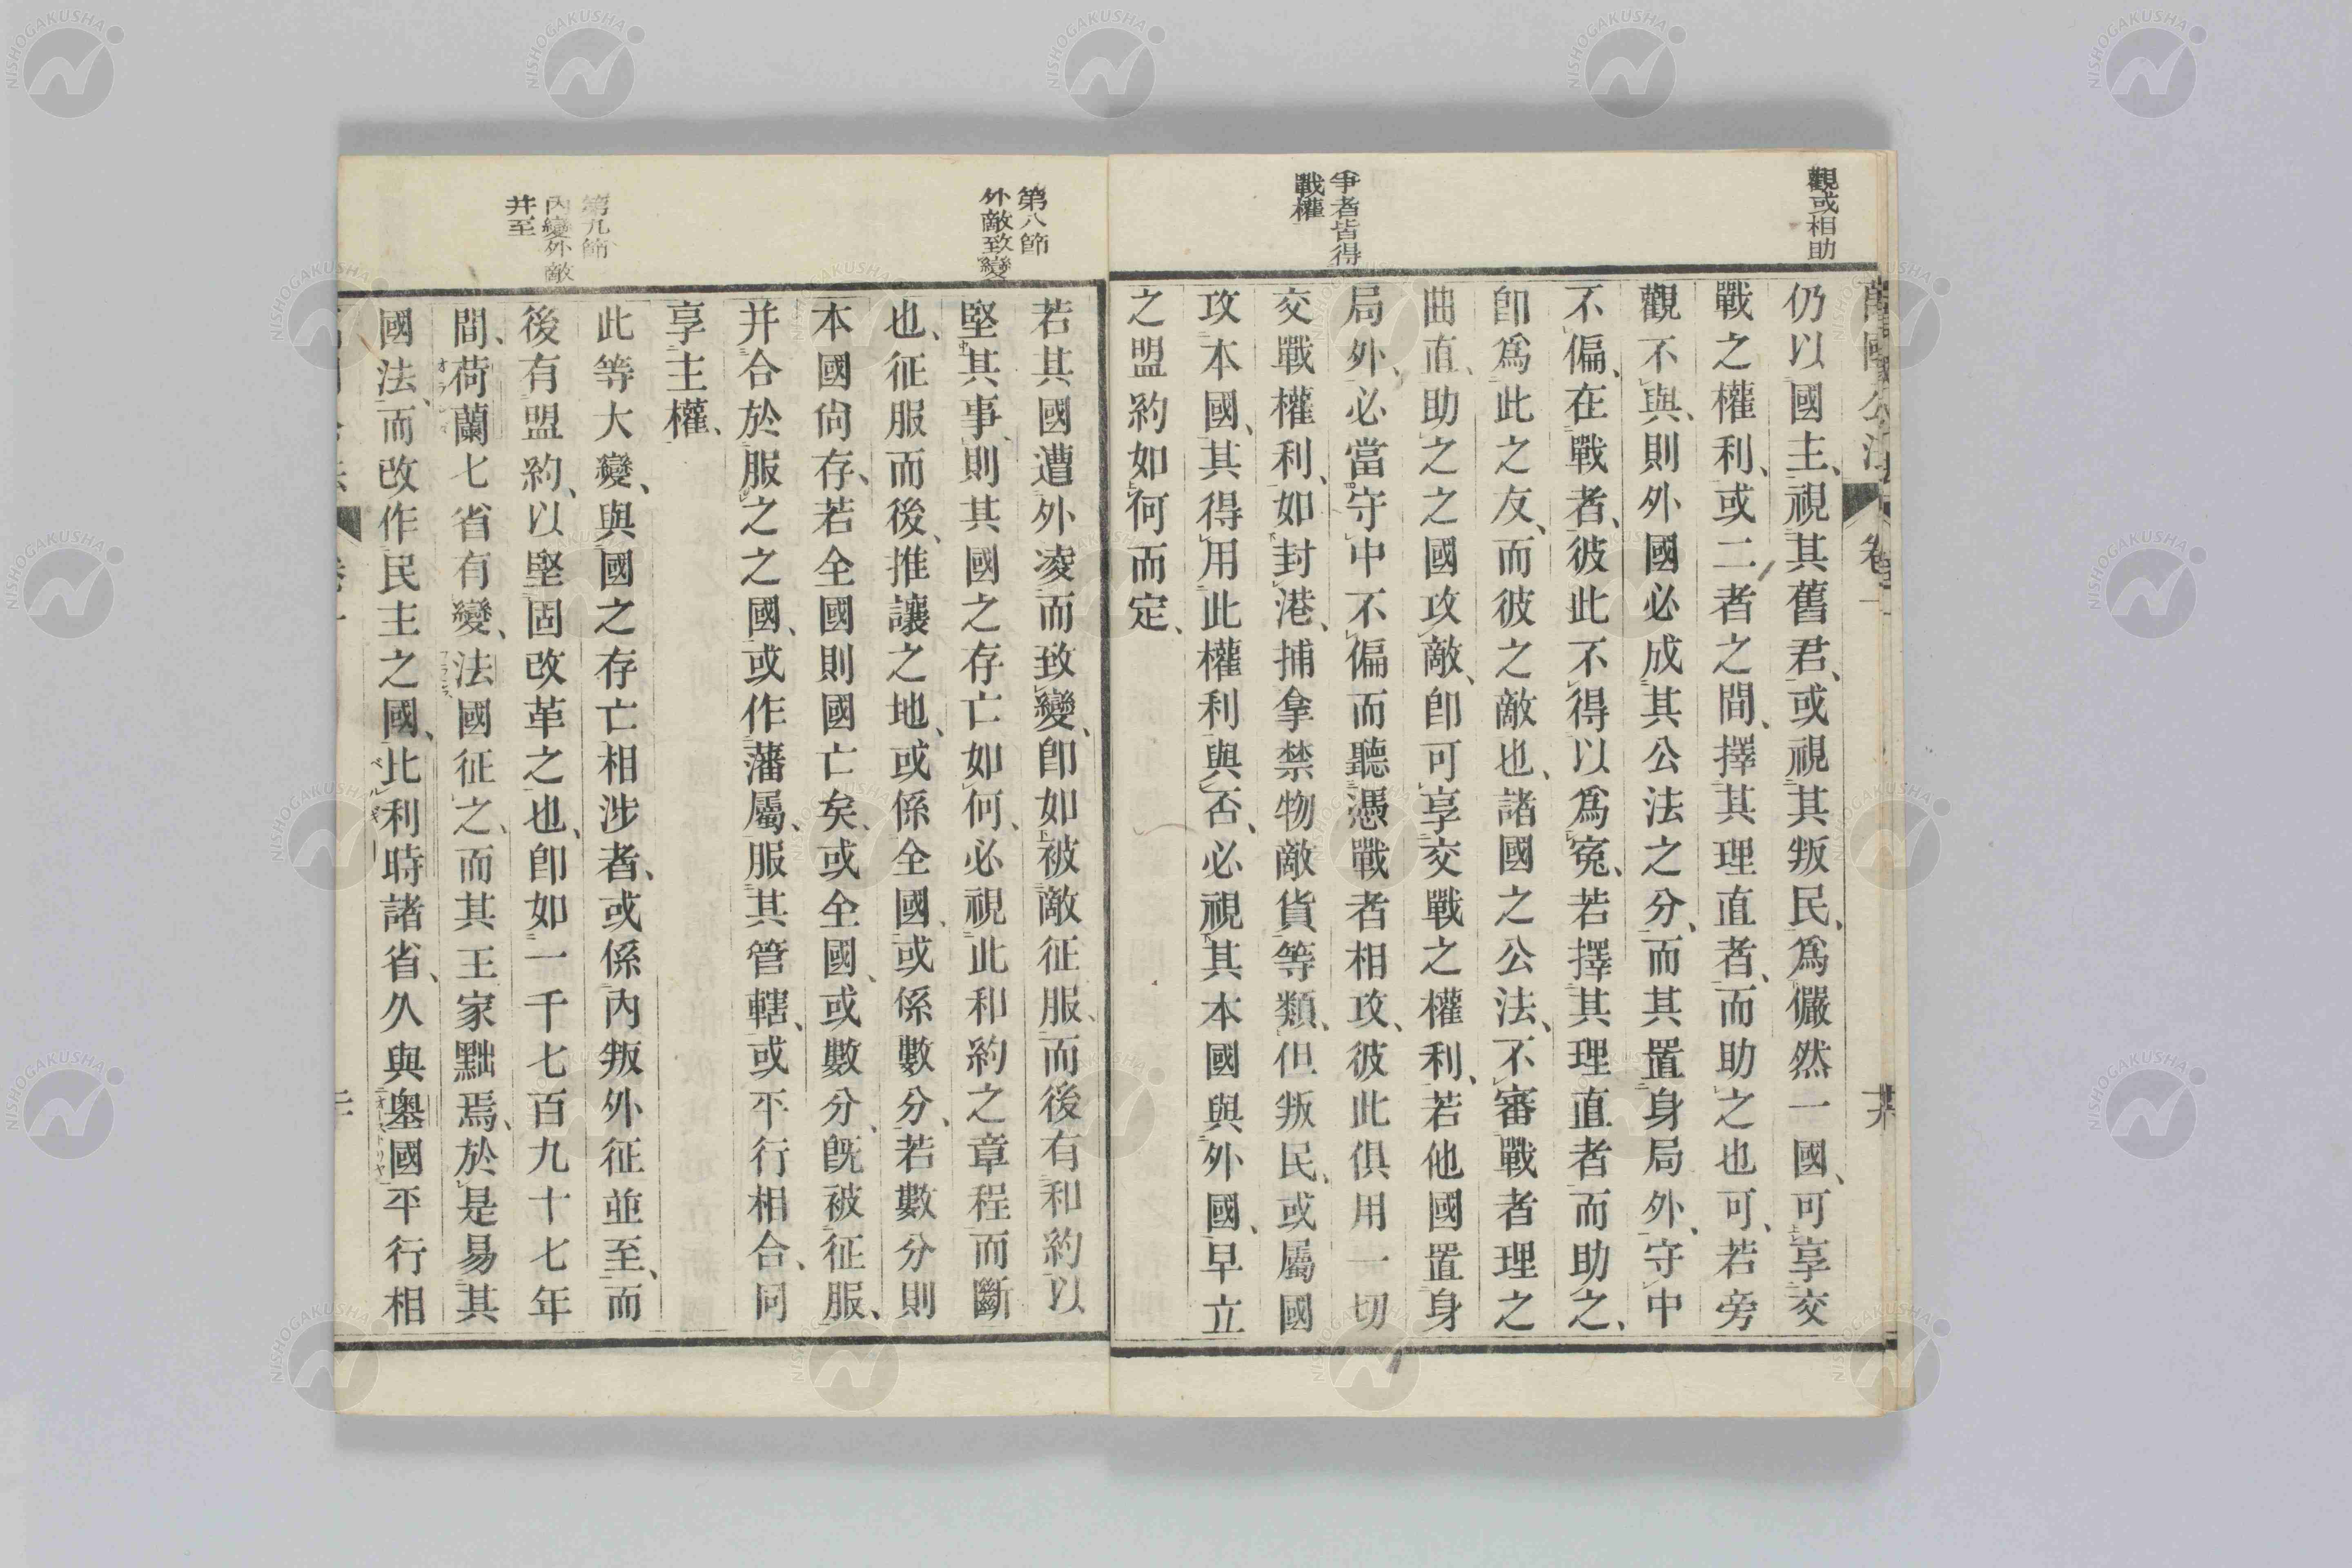 觀或相助
仍以國主、視其舊君、或視其叛民、爲儼然一國、可享交
戰之權利、或二者之間、擇其理直者、而助之也可、若旁
觀不與、則外國必成其公法之分、而其置身局外、守中
不偏、在戰者、彼此不得以爲寃、若擇其理直者而助之、
卽爲此之友、而彼之敵也、諸國之公法、不審戰者理之
曲直、助之之國攻敵、卽可享交戰之權利、若他國置身
局外、必當守中不偏而聽憑戰者相攻、彼此俱用一切
爭者皆得
戰權
交戰權利、如封港、捕拿禁物敵貨等類、但叛民、或屬國
攻本國、其得用此權利與否、必視其本國與外國、早立
之盟約如何而定、
第八節
外敵致變
若其國遭外凌而致變、卽如被敵征服、而後有和約以
堅其事、則其國之存亡如何、必視此和約之章程而斷
也、征服而後、推讓之地、或係全國、或係數分、若數分則
本國尙存、若全國則國亡矣、或全國、或數分、旣被征服、
并合於服之之國、或作藩屬、服其管轄、或平行相合、同
享主權、
第九節
內變外敵
并至
此等大變、與國之存亡相涉者、或係內叛外征並至、而
後有盟約、以堅固改革之也、卽如一千七百九十七年
間、荷蘭七省有變、法國征之、而其王家黜焉、於是易其
國法、而改作民主之國、比利時諸省、久與奧國平行相
NISHOGAKUSHA